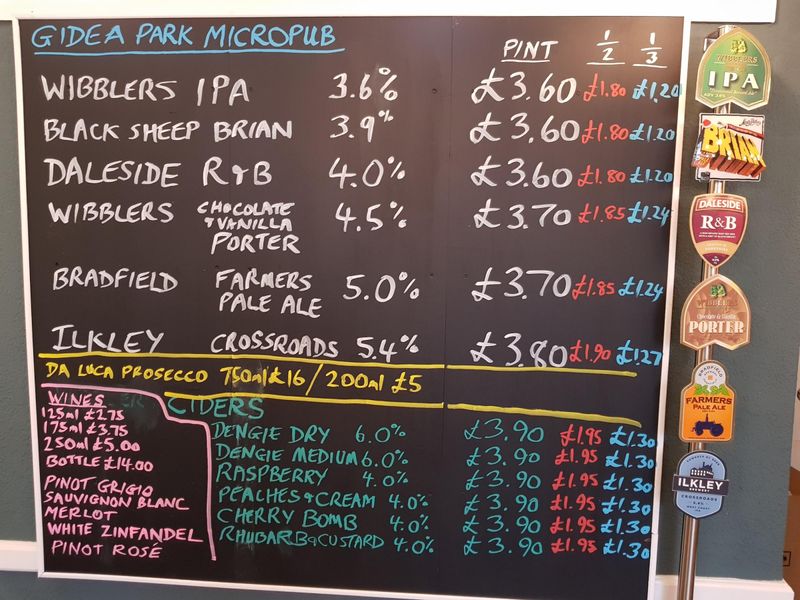 GIDEA PARK MICROPUB
PINT 1/2 1/3
WIBBLERS IPA 3.6% £3.60 £1.80 £1.20
BLACK SHEEP BRIAN 3.9% £3.60 £1.80 £1.20
DALESIDE R&B 4.0% £3.60 £1.80 £1.20
WIBBLERS CHOCOLATE & VANILLA PORTER 4.5% £3.70 £1.85 £1.24
BRADFIELD FARMERS PALE ALE 5.0% £3.70 £1.85 £1.24
ILKLEY CROSSROADS 5.4% £3.80 £1.90 £1.27
DA LUCA PROSECCO 750ml £16 / 200ml £5
WINES
125ml £2.75
175ml £3.75
250ml £5.00
BOTTLE £14.00
PINOT GRIGIO
SAUVIGNON BLANC
MERLOT
WHITE ZINFANDEL
PINOT ROSE
CIDERS
DENGIE DRY 6.0% £3.90 £1.95 £1.30
DENGIE MEDIUM 6.0% £3.90 £1.95 £1.30
RASPBERRY 4.0% £3.90 £1.95 £1.30
PEACHES & CREAM 4.0% £3.90 £1.95 £1.30
CHERRY BOMB 4.0% £3.90 £1.95 £1.30
RHUBARB & CUSTARD 4.0% £3.90 £1.95 £1.30
WIBBLERS
IPA
BRIAN
DALESIDE
R&B
WIBBLERS
Chocolate & Vanilla
PORTER
BRADFIELD
FARMERS
PALE ALE
ILKLEY
BREWERY
CROSSROADS